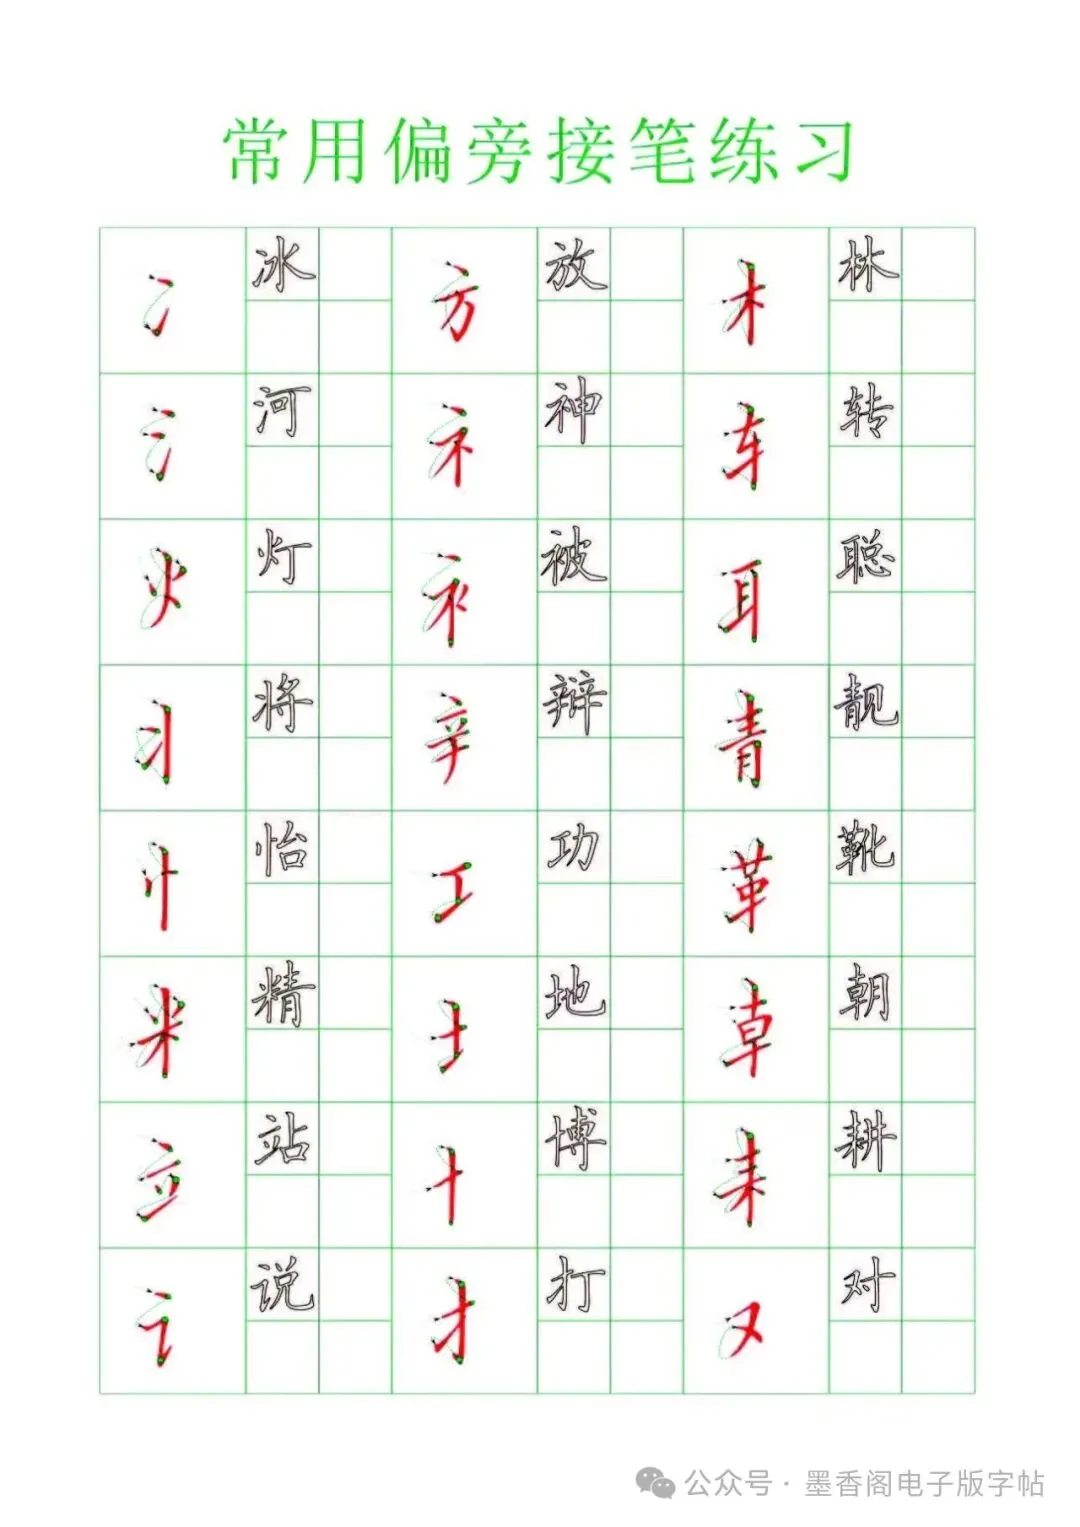 常用偏旁接笔练习
冫 冰 方 放 木 林
氵 河 礻 神 车 转
火 灯 衤 被 耳 聪
丬 将 辛 辩 青 靓
忄 怡 工 功 革 靴
米 精 土 地 龺 朝
立 站 十 博 耒 耕
讠 说 扌 打 又 对
公众号 · 墨香阁电子版字帖